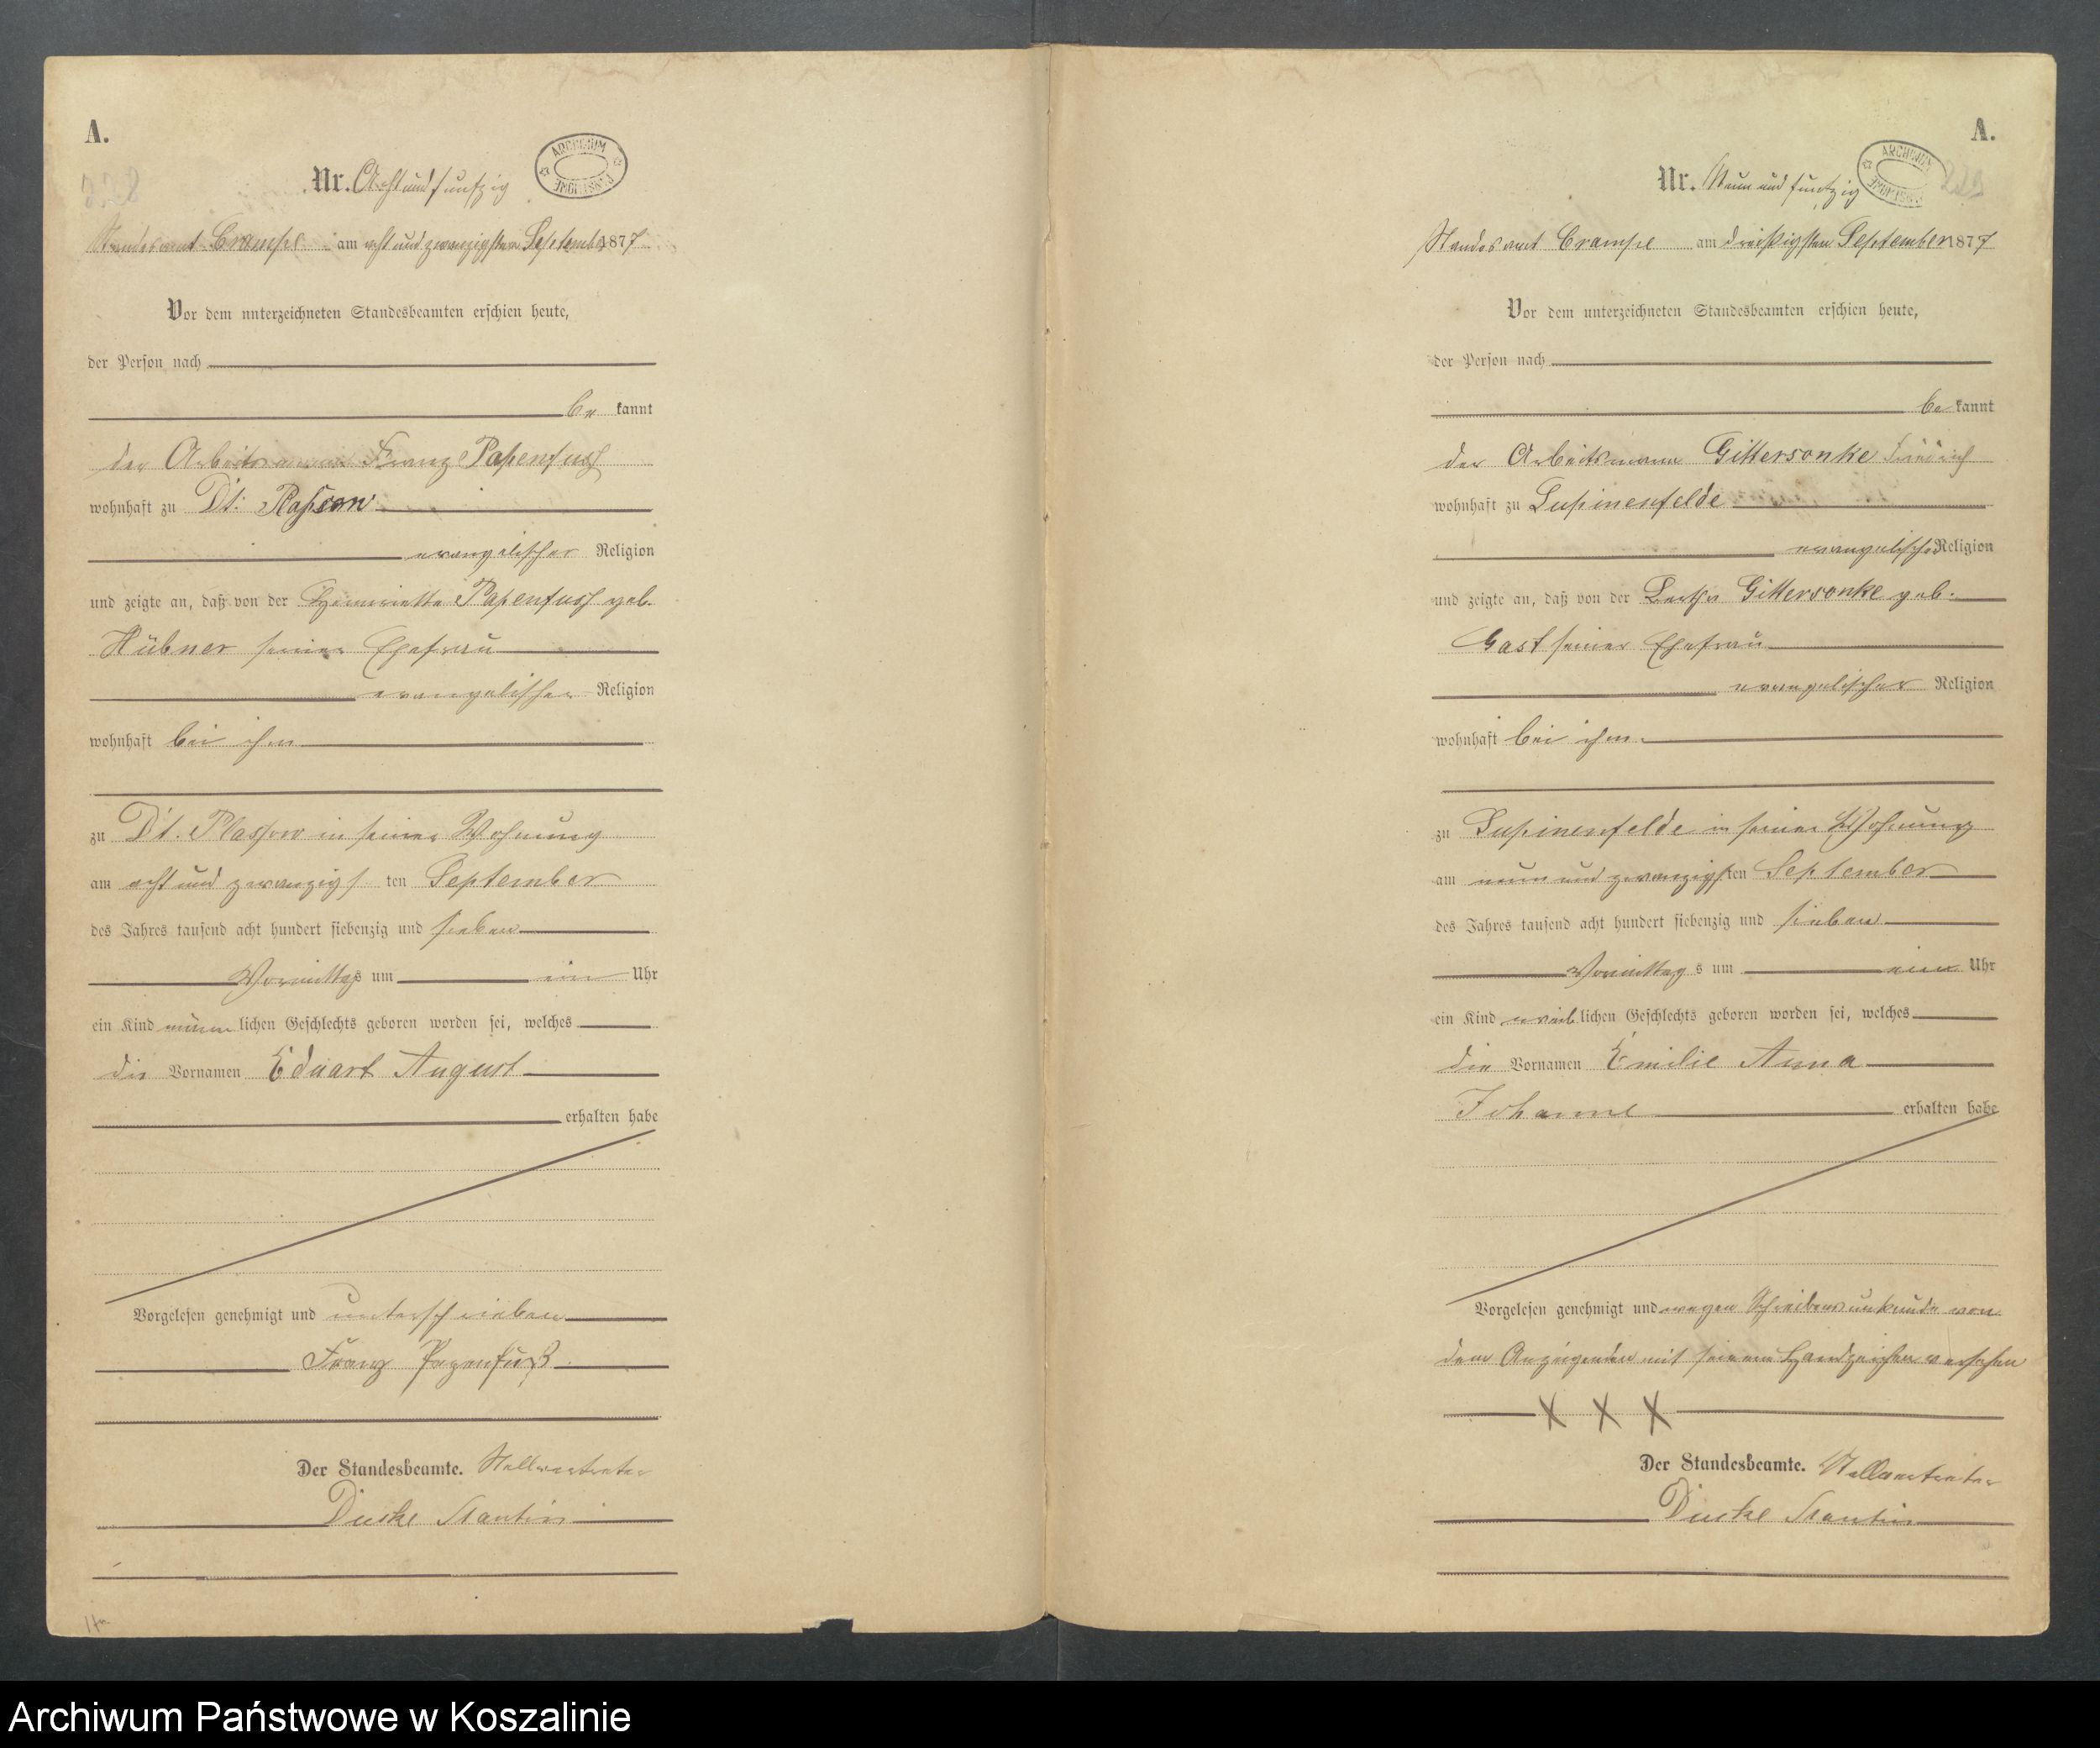 A.
Nr. Acht und funfzig
ARCHIWUM
228
Standesamt Crampe am acht und zwanzigsten September 1877
Vor dem unterzeichneten Standesbeamten erschien heute,
der Person nach
be kannt
der Arbeitsmann Franz Papenfuss
wohnhaft zu Dt. Plassow
evangelischer Religion
und zeigte an, daß von der Henriette Papenfuss geb.
Hübner seiner Ehefrau
evangelischer Religion
wohnhaft bei ihm
zu Dt. Plassow in seiner Wohnung
am acht und zwanzigs ten September
des Jahres tausend acht hundert siebenzig und sieben
Vormittags um ein Uhr
ein Kind männ lichen Geschlechts geboren worden sei, welches
die Vornamen Eduart August
erhalten habe
Vorgelesen genehmigt und unterschrieben
Franz Papenfuß
Der Standesbeamte. Stellvertreter
A.
Nr. Neun und funfzig
ARCHIWUM
229
Standesamt Crampe am dreißigsten September 1877
Vor dem unterzeichneten Standesbeamten erschien heute,
der Person nach
be kannt
der Arbeitsmann Gittersonke Friedrich
wohnhaft zu Lupinenfelde
evangelischer Religion
und zeigte an, daß von der Bertha Gittersonke geb.
Gast seiner Ehefrau
evangelischer Religion
wohnhaft bei ihm
zu Lupinenfelde in seiner Wohnung
am neun und zwanzigs ten September
des Jahres tausend acht hundert siebenzig und sieben
Vormittag s um ein Uhr
ein Kind weib lichen Geschlechts geboren worden sei, welches
die Vornamen Emilie Anna
Johanne erhalten habe
Vorgelesen genehmigt und wegen Schreibensunkunde von
dem Anzeigenden mit seinem Handzeichen versehen
X X X
Der Standesbeamte. Stellvertreter
Archiwum Państwowe w Koszalinie